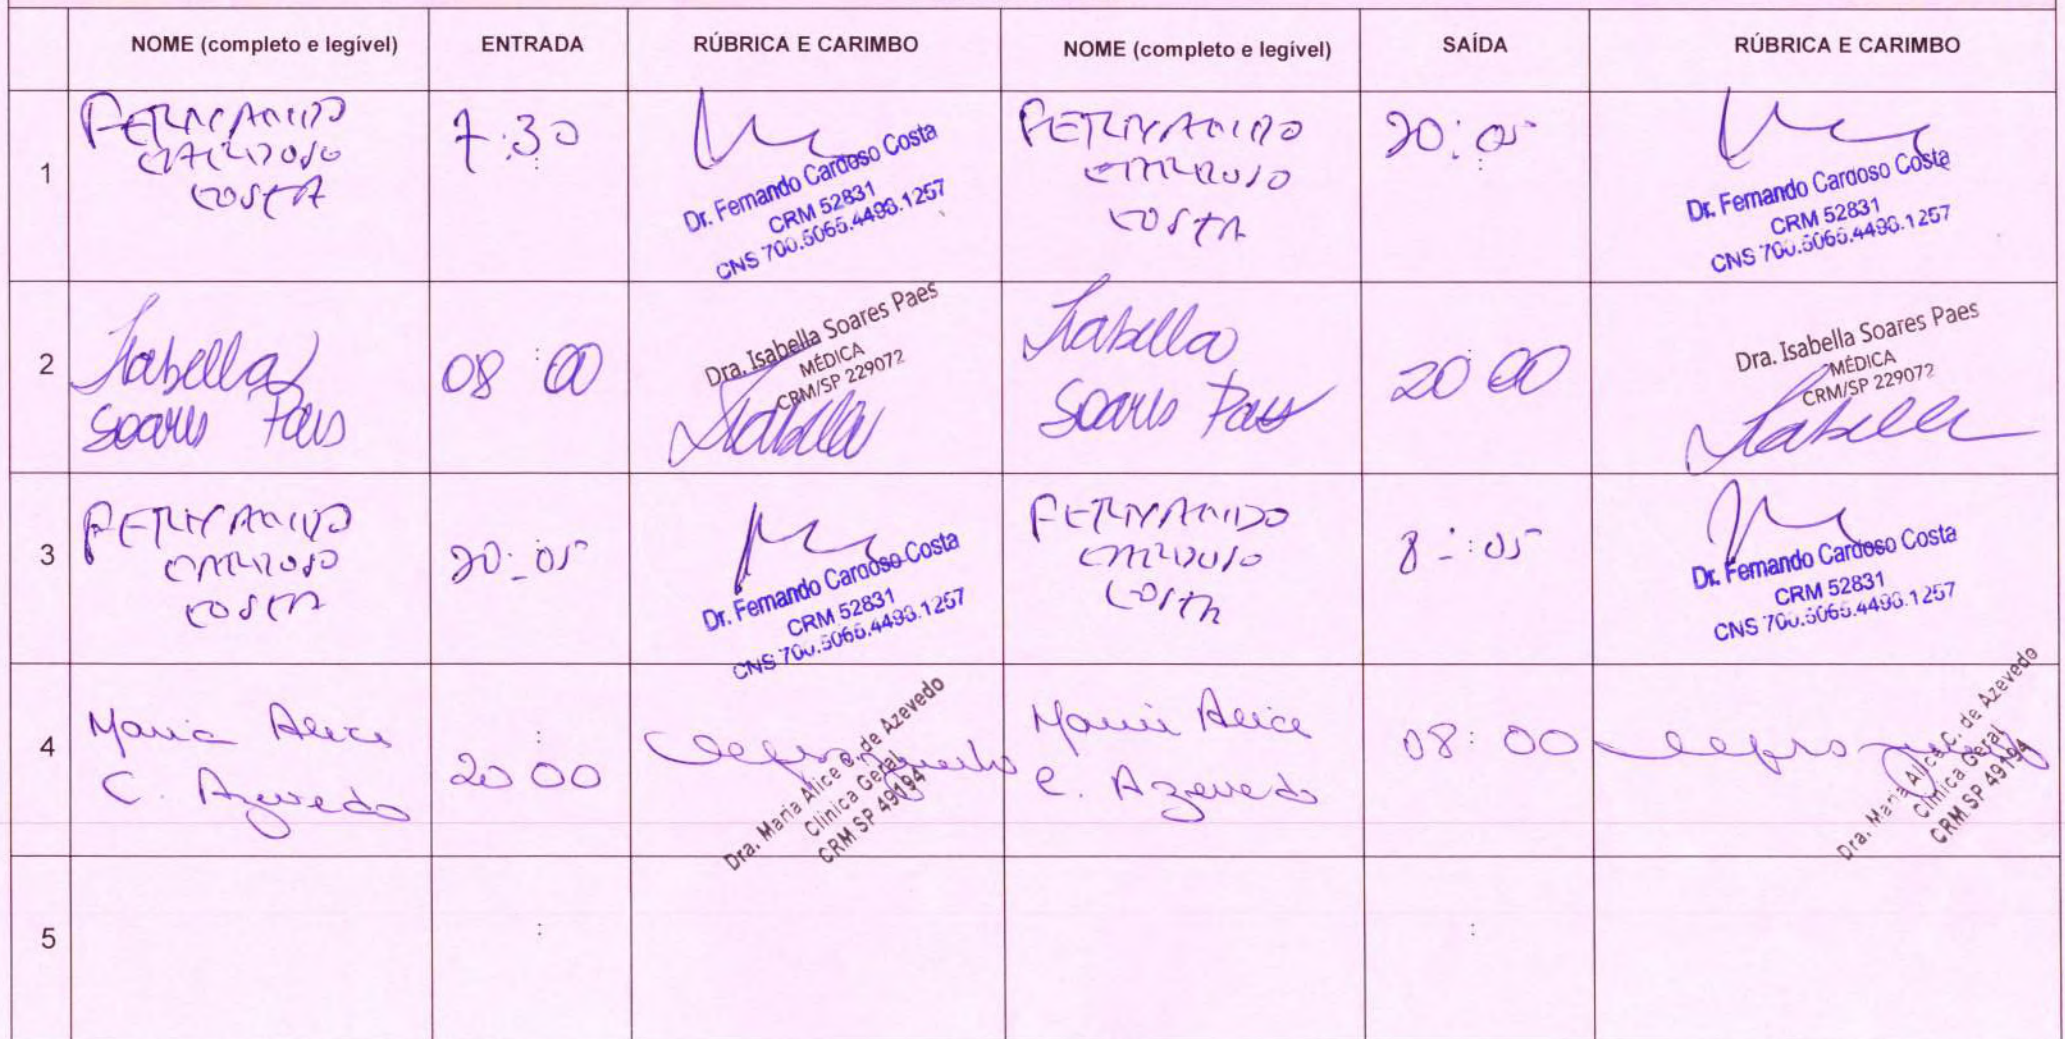 NOME (completo e legível) ENTRADA RÚBRICA E CARIMBO NOME (completo e legível) SAÍDA RÚBRICA E CARIMBO
1
FERNANDO
CARDOSO
COSTA
7:30
Dr. Fernando Cardoso Costa
CRM 52831
CNS 700.5065.4493.1257
FERNANDO
CARDOSO
COSTA
20:05
Dr. Fernando Cardoso Costa
CRM 52831
CNS 700.5065.4493.1257
2
Isabella
Soares Paes
08:00
Dra. Isabella Soares Paes
MÉDICA
CRM/SP 229072
Isabella
Isabella
Soares Paes
20:00
Dra. Isabella Soares Paes
MÉDICA
CRM/SP 229072
Isabella
3
FERNANDO
CARDOSO
COSTA
20:05
Dr. Fernando Cardoso Costa
CRM 52831
CNS 700.5065.4493.1257
FERNANDO
CARDOSO
COSTA
8:05
Dr. Fernando Cardoso Costa
CRM 52831
CNS 700.5065.4493.1257
4
Maria Alice
C. Azevedo
20:00
Dra. Maria Alice C. de Azevedo
Clínica Geral
CRM SP 49194
Maria Alice
C. Azevedo
08:00
Dra. Maria Alice C. de Azevedo
Clínica Geral
CRM SP 49194
5
:
: